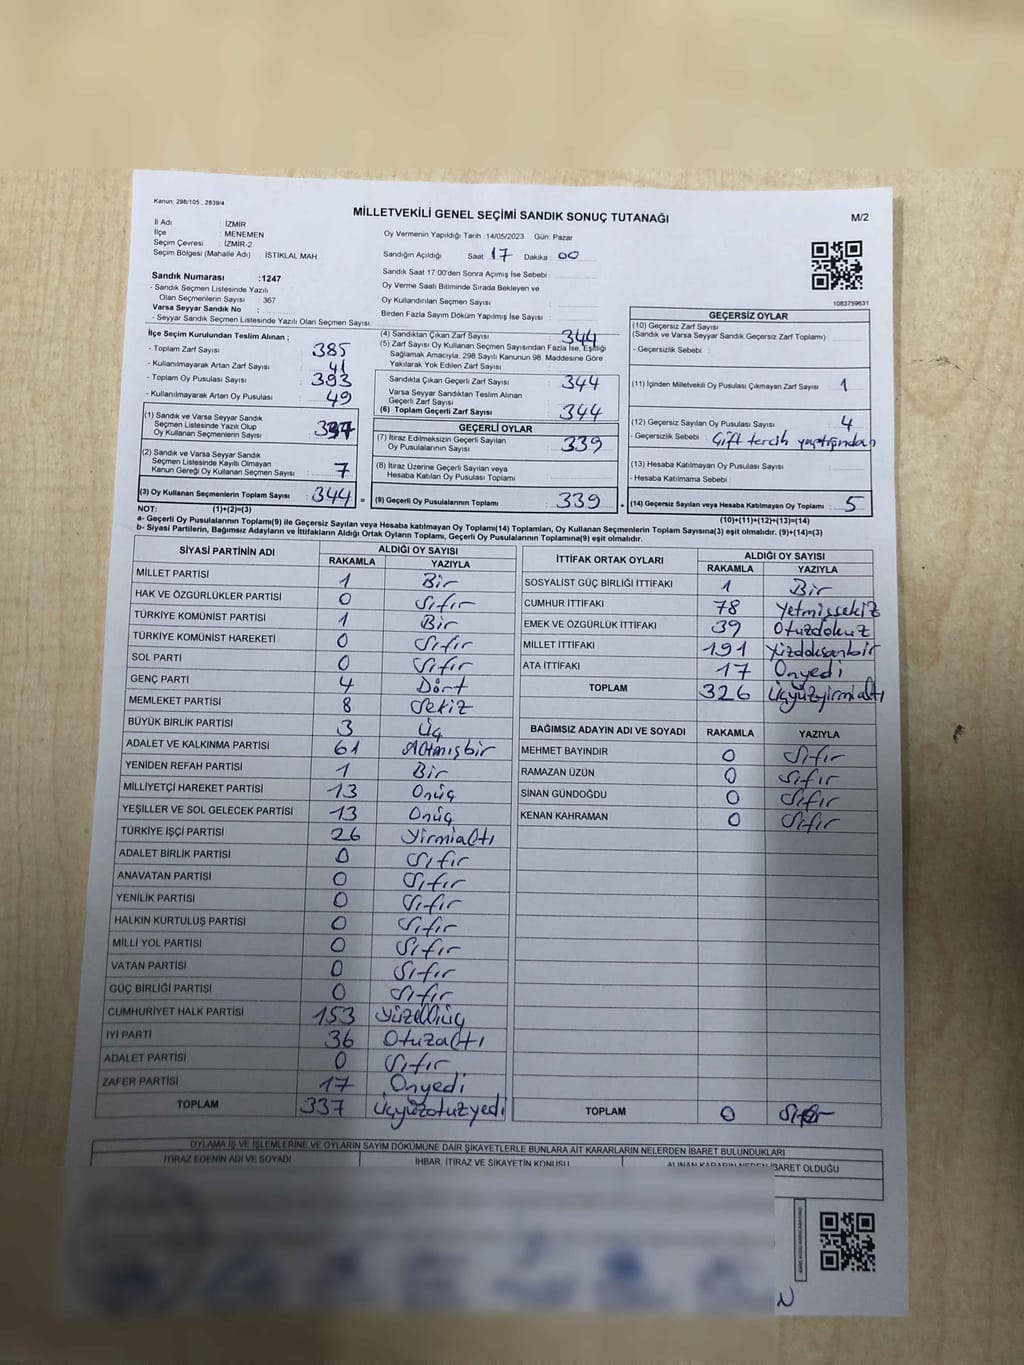 Kanun: 298/105 , 2839/4
MİLLETVEKİLİ GENEL SEÇİMİ SANDIK SONUÇ TUTANAĞI
M/2
İl Adı : İZMİR
İlçe : MENEMEN
Seçim Çevresi : İZMİR-2
Seçim Bölgesi (Mahalle Adı) İSTİKLAL MAH.
Oy Vermenin Yapıldığı Tarih :14/05/2023 Gün: Pazar
Sandığın Açıldığı Saat 17 Dakika 00
Sandık Saat 17.00'den Sonra Açımış İse Sebebi :
Oy Verme Saati Bitiminde Sırada Bekleyen ve
Oy Kullandırılan Seçmen Sayısı :
Birden Fazla Sayım Döküm Yapılmış İse Sayısı :
Sandık Numarası :1247
- Sandık Seçmen Listesinde Yazılı
Olan Seçmenlerin Sayısı : 367
Varsa Seyyar Sandık No :
- Seyyar Sandık Seçmen Listesinde Yazılı Olan Seçmen Sayısı:
1083759631
İlçe Seçim Kurulundan Teslim Alınan ;
- Toplam Zarf Sayısı : 385
- Kullanılmayarak Artan Zarf Sayısı : 41
- Toplam Oy Pusulası Sayısı : 393
- Kullanılmayarak Artan Oy Pusulası : 49
(1) Sandık ve Varsa Seyyar Sandık
Seçmen Listesinde Yazılı Olup
Oy Kullanan Seçmenlerin Sayısı : 337
(2) Sandık ve Varsa Seyyar Sandık
Seçmen Listesinde Kayıtlı Olmayan
Kanun Gereği Oy Kullanan Seçmen Sayısı : 7
(3) Oy Kullanan Seçmenlerin Toplam Sayısı : 344 =
(4) Sandıktan Çıkan Zarf Sayısı : 344
(5) Zarf Sayısı Oy Kullanan Seçmen Sayısından Fazla İse, Eşitliği
Sağlamak Amacıyla, 298 Sayılı Kanunun 98. Maddesine Göre
Yakılarak Yok Edilen Zarf Sayısı :
Sandıkta Çıkan Geçerli Zarf Sayısı : 344
Varsa Seyyar Sandıktan Teslim Alınan
Geçerli Zarf Sayısı :
(6) Toplam Geçerli Zarf Sayısı : 344
GEÇERLİ OYLAR
(7) İtiraz Edilmeksizin Geçerli Sayılan
Oy Pusulalarının Sayısı : 339
(8) İtiraz Üzerine Geçerli Sayılan veya
Hesaba Katılan Oy Pusulaları Toplamı :
(9) Geçerli Oy Pusulalarının Toplamı : 339 +
GEÇERSİZ OYLAR
(10) Geçersiz Zarf Sayısı
(Sandık ve Varsa Seyyar Sandık Geçersiz Zarf Toplamı) :
- Geçersizlik Sebebi :
(11) İçinden Milletvekili Oy Pusulası Çıkmayan Zarf Sayısı : 1
(12) Geçersiz Sayılan Oy Pusulası Sayısı : 4
- Geçersizlik Sebebi : Çift tercih yaptığından
(13) Hesaba Katılmayan Oy Pusulası Sayısı :
- Hesaba Katılmama Sebebi :
(14) Geçersiz Sayılan veya Hesaba Katılmayan Oy Toplamı : 5
NOT: (1)+(2)=(3)
(10)+(11)+(12)+(13)=(14)
a- Geçerli Oy Pusulalarının Toplamı(9) ile Geçersiz Sayılan veya Hesaba katılmayan Oy Toplamı(14) Toplamları, Oy Kullanan Seçmenlerin Toplam Sayısına(3) eşit olmalıdır. (9)+(14)=(3)
b- Siyasi Partilerin, Bağımsız Adayların ve İttifakların Aldığı Ortak Oyların Toplamı, Geçerli Oy Pusulalarının Toplamına(9) eşit olmalıdır.
SİYASİ PARTİNİN ADI ALDIĞI OY SAYISI
RAKAMLA YAZIYLA
MİLLET PARTİSİ 1 Bir
HAK VE ÖZGÜRLÜKLER PARTİSİ 0 Sıfır
TÜRKİYE KOMÜNİST PARTİSİ 1 Bir
TÜRKİYE KOMÜNİST HAREKETİ 0 Sıfır
SOL PARTİ 0 Sıfır
GENÇ PARTİ 4 Dört
MEMLEKET PARTİSİ 8 Sekiz
BÜYÜK BİRLİK PARTİSİ 3 Üç
ADALET VE KALKINMA PARTİSİ 61 Altmışbir
YENİDEN REFAH PARTİSİ 1 Bir
MİLLİYETÇİ HAREKET PARTİSİ 13 Onüç
YEŞİLLER VE SOL GELECEK PARTİSİ 13 Onüç
TÜRKİYE İŞÇİ PARTİSİ 26 Yirmialtı
ADALET BİRLİK PARTİSİ 0 Sıfır
ANAVATAN PARTİSİ 0 Sıfır
YENİLİK PARTİSİ 0 Sıfır
HALKIN KURTULUŞ PARTİSİ 0 Sıfır
MİLLİ YOL PARTİSİ 0 Sıfır
VATAN PARTİSİ 0 Sıfır
GÜÇ BİRLİĞİ PARTİSİ 0 Sıfır
CUMHURİYET HALK PARTİSİ 153 Yüzelliüç
İYİ PARTİ 36 Otuzaltı
ADALET PARTİSİ 0 Sıfır
ZAFER PARTİSİ 17 Onyedi
TOPLAM 337 Üçyüzotuzyedi
İTTİFAK ORTAK OYLARI ALDIĞI OY SAYISI
RAKAMLA YAZIYLA
SOSYALİST GÜÇ BİRLİĞİ İTTİFAKI 1 Bir
CUMHUR İTTİFAKI 78 Yetmişsekiz
EMEK VE ÖZGÜRLÜK İTTİFAKI 39 Otuzdokuz
MİLLET İTTİFAKI 191 Yüzdoksanbir
ATA İTTİFAKI 17 Onyedi
TOPLAM 326 Üçyüzyirmialtı
BAĞIMSIZ ADAYIN ADI VE SOYADI RAKAMLA YAZIYLA
MEHMET BAYINDIR 0 Sıfır
RAMAZAN ÜZÜN 0 Sıfır
SİNAN GÜNDOĞDU 0 Sıfır
KENAN KAHRAMAN 0 Sıfır
TOPLAM 0 Sıfır
OYLAMA İŞ VE İŞLEMLERİNE VE OYLARIN SAYIM DÖKÜMÜNE DAİR ŞİKAYETLERLE BUNLARA AİT KARARLARIN NELERDEN İBARET BULUNDUKLARI
İTİRAZ EDENİN ADI VE SOYADI İHBAR, İTİRAZ VE ŞİKAYETİN KONUSU ALINAN KARARIN NEDEN İBARET OLDUĞU
N